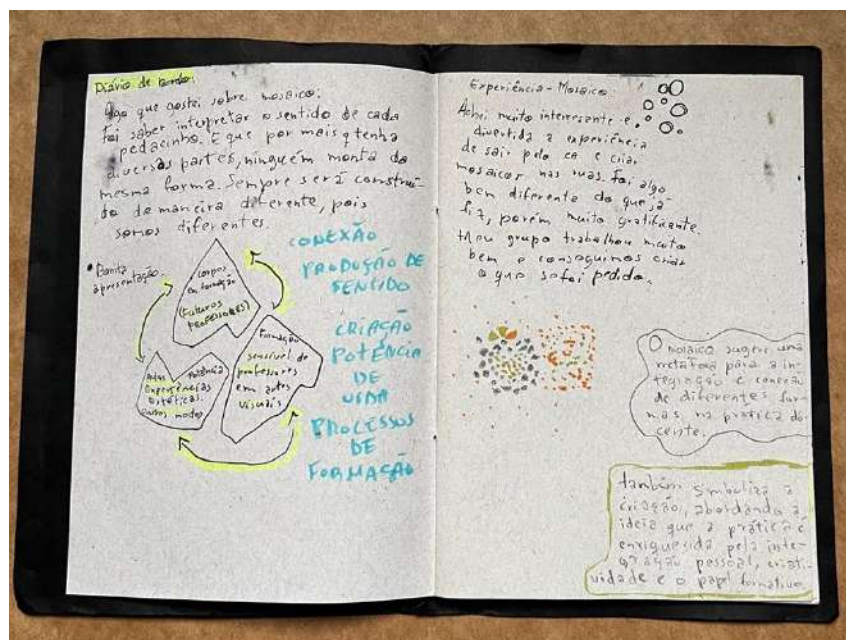 Diário de bordo.
Algo que gostei sobre mosaico.
Foi saber interpretar o sentido de cada
pedacinho. E que por mais q tenha
diversas partes, ninguém monta da
mesma forma. Sempre será construí-
do de maneira diferente, pois
somos diferentes.
• Bonita
apresentação.
Corpos
em formação
(Futuros
PROFESSORES)
potência
Experiências
Estéticas.
outros modos
Formação
sensível de
professores
em artes
visuais
CONEXÃO
PRODUÇÃO DE
SENTIDO
CRIAÇÃO
POTÊNCIA
DE
VIDA
PROCESSOS
DE
FORMAÇÃO
Experiência - Mosaico
Achei muito interessante e
divertida a experiência
de sair pelo ca e criar
mosaicos nas ruas. Foi algo
bem diferente do que já
fiz, porém muito gratificante.
Meu grupo trabalhou muito
bem e conseguimos criar
o que foi pedido.
O mosaico sugere uma
metáfora para a in-
tegração e conexão
de diferentes for-
mas, na prática do-
cente.
também simboliza a
criação, abordando a
ideia que a prática é
enriquecida pela inte-
gração pessoal, criati-
vidade e o papel formativo